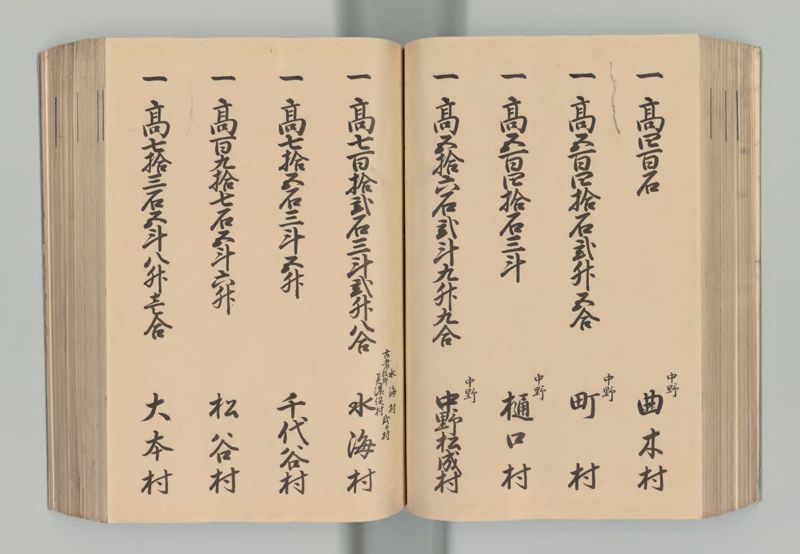 一 高四百石 中野 曲木村
一 高五百四拾石弐升五合 中野 町村
一 高五百四拾石三斗 中野 樋口村
一 高五拾六石弐斗九升九合 中野松成村
一 高七百拾弐石三斗弐升八合 水海村
古者水海村
弐ヶ村
一 高七拾五石三斗五升 千代谷村
一 高百九拾七石五斗六升 松谷村
一 高七拾三石五斗八升壱合 大本村